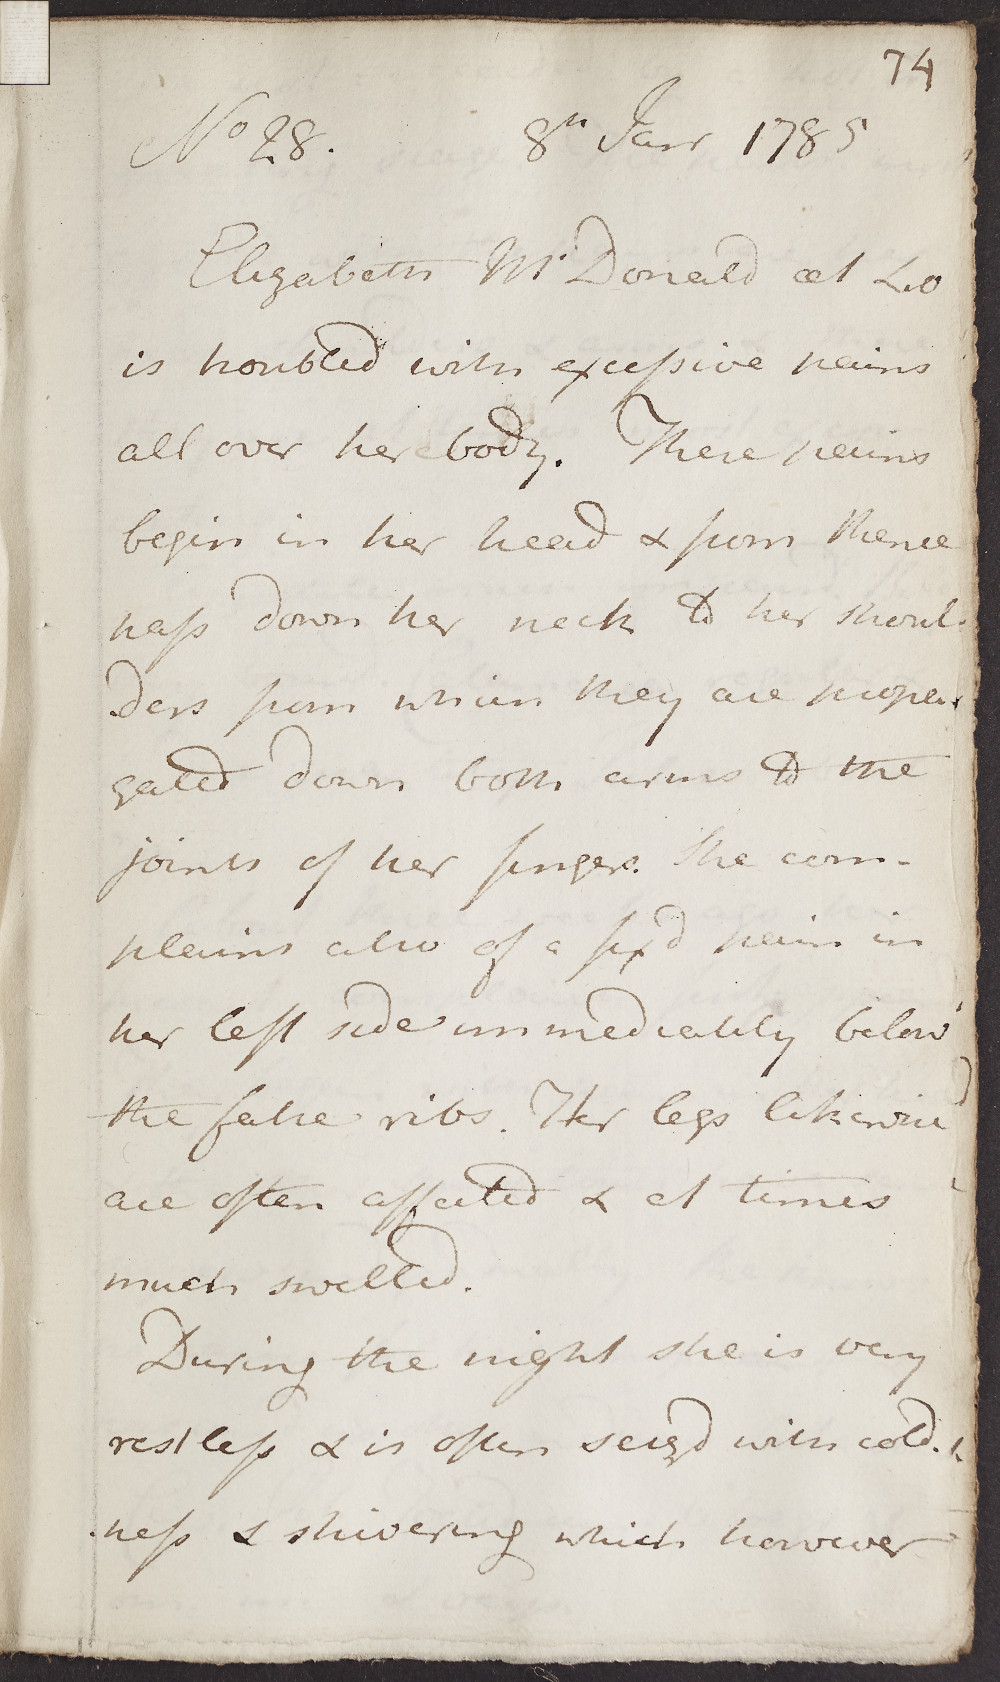 74
No 28. 8th Janr 1785
Elizabeth McDonald aet 40
is troubled with excessive pains
all over her body. These pains
begin in her head & from thence
pass down her neck to her shoul-
ders from which they are propa-
gated down both arms to the
joints of her fingers. She com-
plains also of a fix'd pain in
her left side immediately below
the false ribs. Her legs likewise
are often affected & at times
much swelled.
During the night she is very
restless & is often seiz'd with cold-
ness & shivering which however